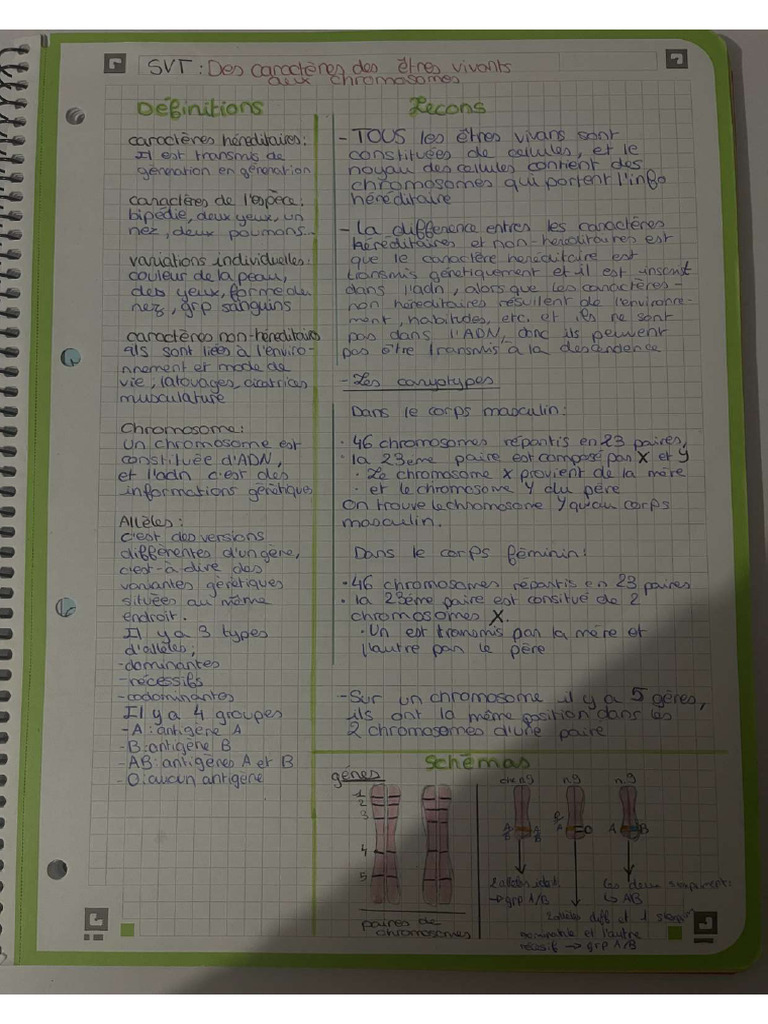 SVT : Des caractères des êtres vivants
aux chromosomes
Définitions
caractères héréditaires:
Il est transmis de
génération en génération
caractères de l'espèce:
bipédie, deux yeux, un
nez, deux poumons...
variations individuelles:
couleur de la peau,
des yeux, forme de
nez, grp sanguins
caractères non-héréditaires
ils sont liées à l'enviro-
nnement et mode de
vie, tatouages, cicatrices
musculature
Chromosome:
un chromosome est
constituée d'ADN,
et l'adn c'est des
informations génétiques
Allèles:
c'est des versions
différentes d'un gène,
c'est-à dire des
variantes génétiques
situées au même
endroit.
Il y a 3 types
d'allèles;
-dominantes
-récessifs
-codominantes
Il y a 4 groupes
-A: antigène A
-B: antigène B
-AB: antigènes A et B
-O: aucun antigène
Leçons
- TOUS les êtres vivans sont
constituées de cellules, et le
noyau des cellules contient des
chromosomes qui portent l'info
héréditaire
- La différence entres les caractères
héréditaires et non-hereditaires est
que le caractère héréditaire est
transmis génétiquement et il est inscrit
dans l'adn, alors que les caractères-
non héréditaires résultent de l'environne-
ment, habitudes, etc. et ils ne sont
pas dans l'ADN, donc ils peuvent
pas être transmis à la descendence
- Les caryotypes
Dans le corps masculin:
• 46 chromosomes répartis en 23 paires,
• la 23eme paire est composé par X et Y
• Le chromosome X provient de la mère
• et le chromosome Y du père
On trouve le chromosome Y qu'au corps
masculin.
Dans le corps féminin:
• 46 chromosomes répartis en 23 paires
• la 23éme paire est consitué de 2
chromosomes X.
• Un est transmis par la mère et
l'autre par le père
-Sur un chromosome il y a 5 gènes,
ils ont la même position dans les
2 chromosomes d'une paire
Schémas
gènes
1
2
3
4
5
paires de
chromosomes
n.9
n.9
A
B
A
B
A
O
A
B
2 allèles
→ grp A/B
Les deux
↳ AB
diff et 1
et l'autre
récessif → grp A/B